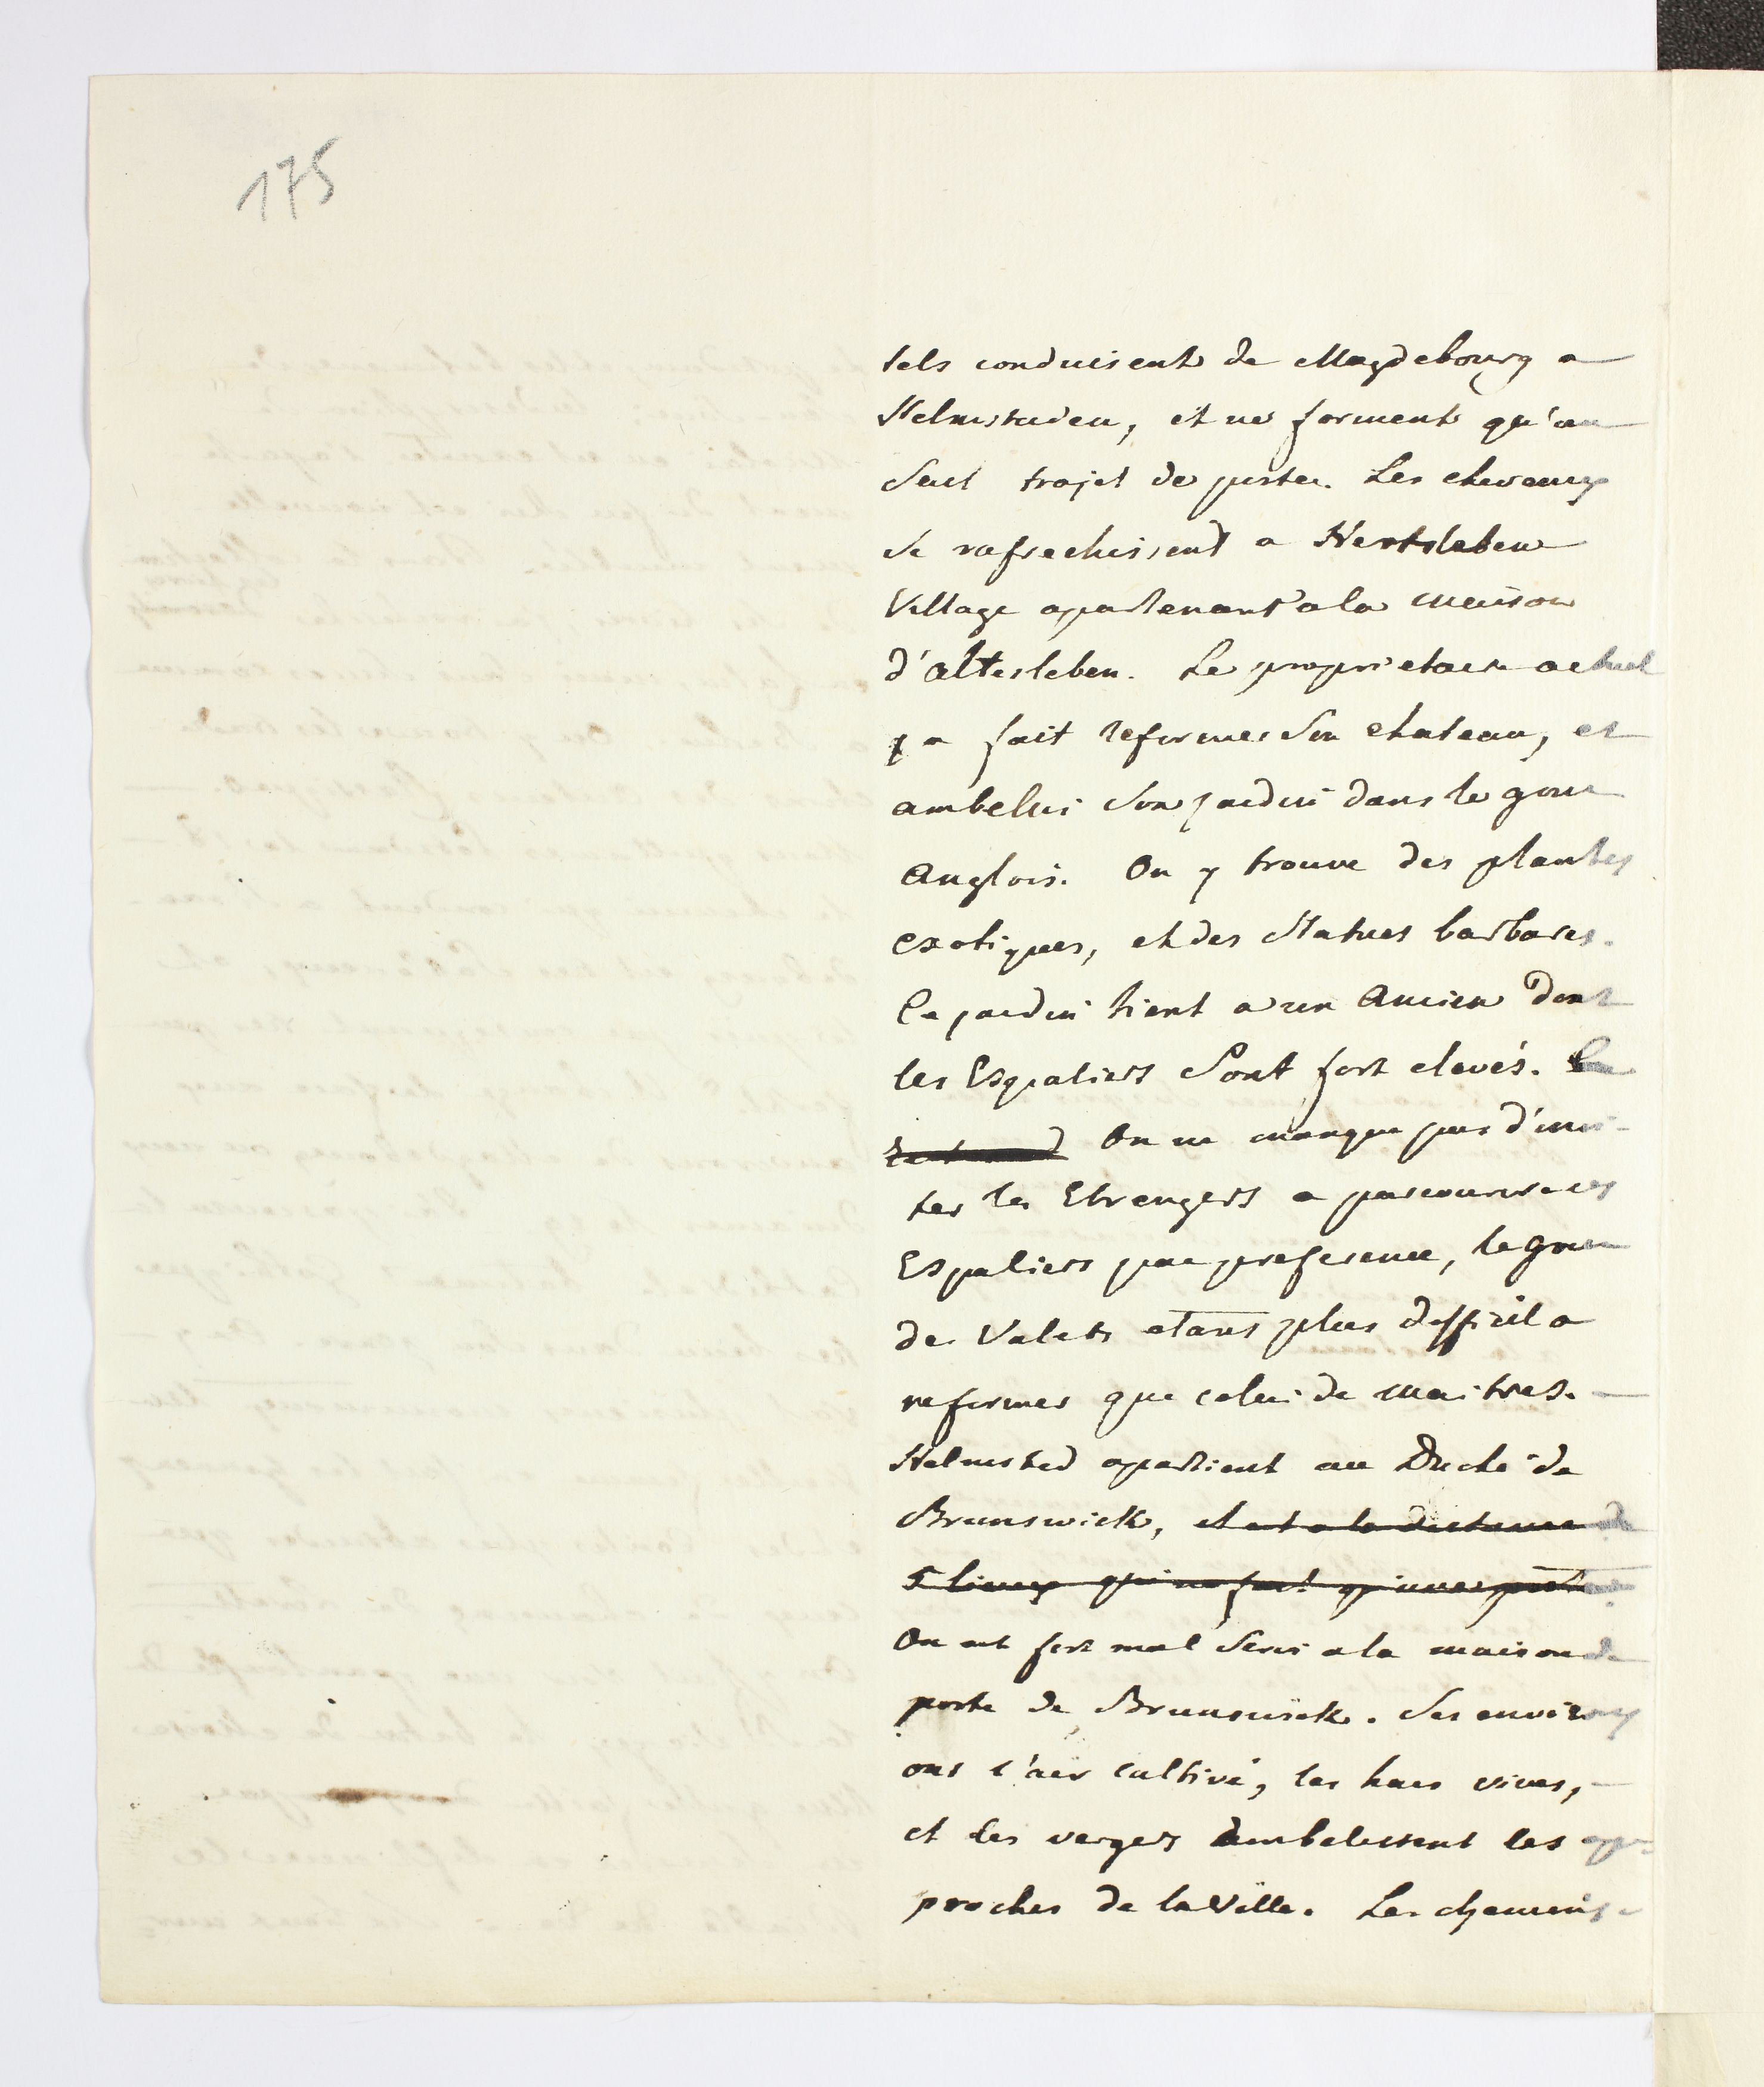 175
tels conduisent de Magdebourg a
Helmstaden, et ne forment qu'un
Seul trajet de poste. Les chevaux
Se rafrechissent a Hertsleben
Village apartenant a la maison
d'altesleben. Le proprietaire actuel
y a fait reformer Son chateau, et
ambelir Son jardin dans le gout
Anglois. On y trouve des plantes
exotiques, et des Statues barbares.
Ce jardin tient a un Ancien dont
les Espaliers Sont fort elevés.
On ne manque pas d'invi-
ter les Etrangers a parcourir ces
Espaliers par preference, le gout
de Valets etant plus difficil a
reformer que celui de maitres. —
Helmsted apartient au Duché de
Brunswick, et est a la distance de
5 lieues qui ne font qu'une poste
On est fort mal Servi a la maison de
poste de Brunswick. Ses environs
ont l'air cultivé, les haies vives, —
et les vergers ambelissent les ap-
proches de la Ville. Les chemins